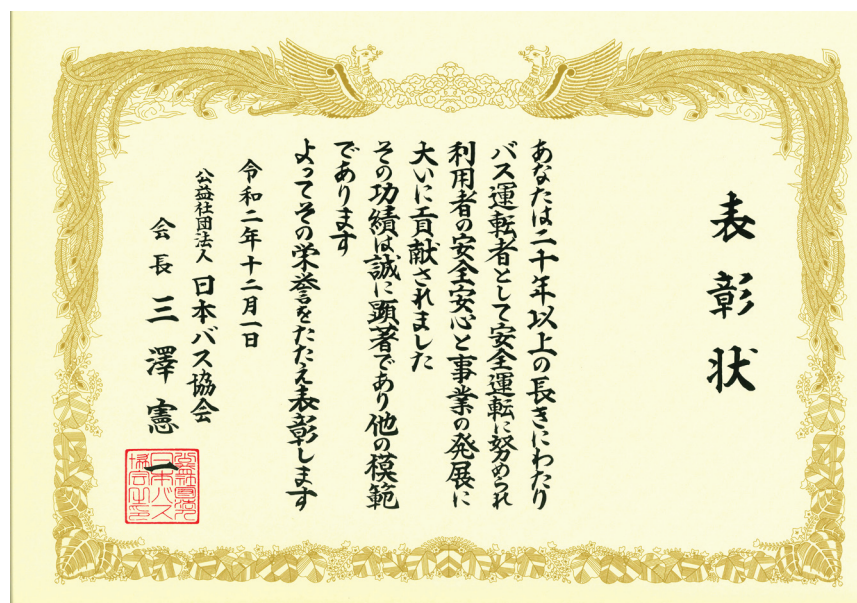 表彰状
あなたは二十年以上の長きにわたり
バス運転者として安全運転に努められ
利用者の安全安心と事業の発展に
大いに貢献されました
その功績は誠に顕著であり他の模範
であります
よってその栄誉をたたえ表彰します
令和二年十二月一日
公益社団法人 日本バス協会
会長 三澤憲一